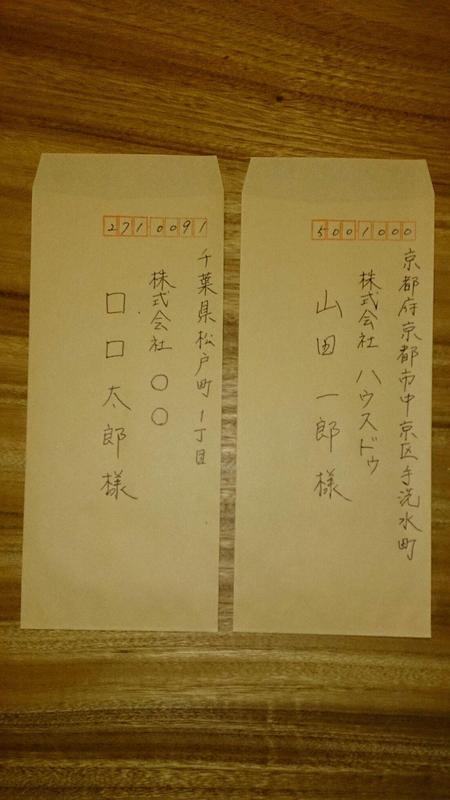 5001000
京都府京都市中京区手洗水町
株式会社 ハウスドゥ
山田一郎様
2710091
千葉県松戸町1丁目
株式会社 〇〇
口口太郎様